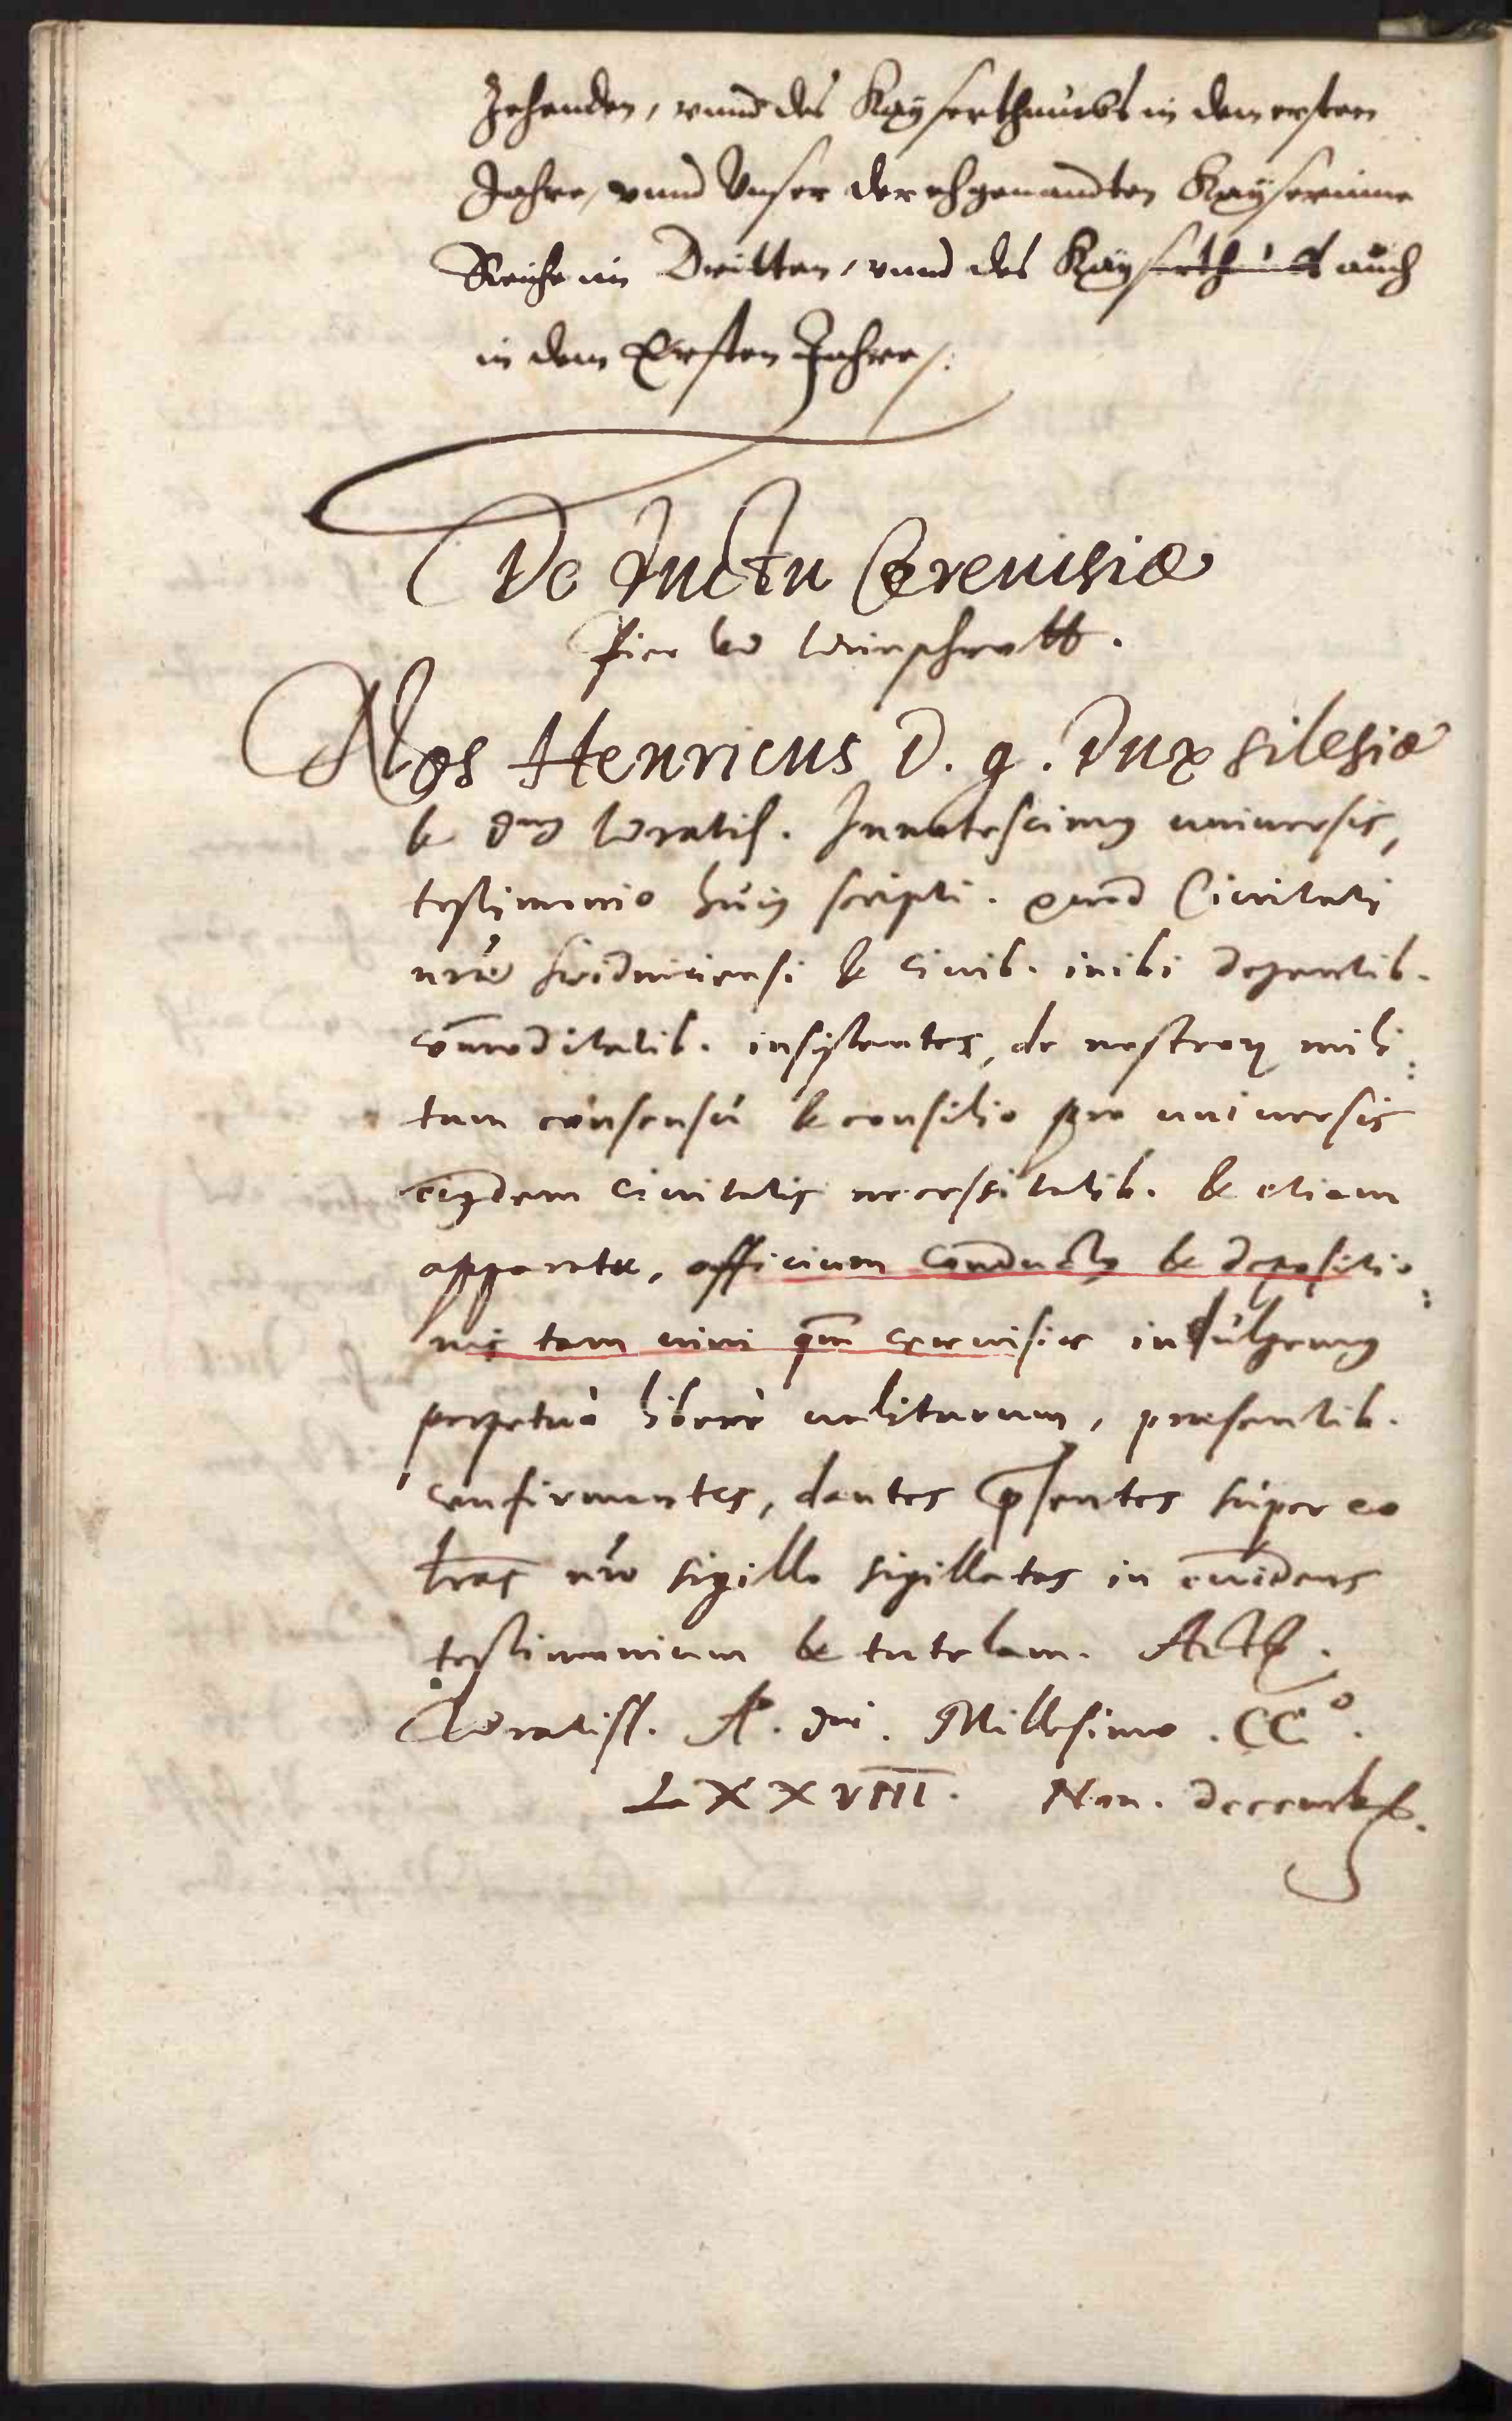 Zehenden, vnnd des Kayserthumbs in den ersten
Jahre, vnnd Vnser der ehgenandten Kayserinne
Reiche im Dritten, vnnd des Kayserthumbs auch
in dem Ersten Jahre /.
De ductu Cereuisiæ
Bier
Nos Henricus D. g. Dux Silesiæ
& dns Wratisl. Innotescimus uniuersis,
testimonio huius scripti. quod Ciuitati
nræ Swidniciensi & ciuib. inibi degentib.
com̄oditatib. insistentes, de nostrorum mili:
tum consensu & consilio pro uniuersis
eiusdem ciuitatis necessitatib. & etiam
apparatu, officium conductus & depositio:
nis tam uini qm cereuisiæ indulgemus
perpetuò liberè ualiturum, præsentib.
confirmantes, dantes pr̄sentes super eo
lras nro sigillo sigillatas in euidens
testimonium & tutelam. Actum.
Wratisl. Ao. dni. Millesimo. CCo.
LXXVIII. Non. decembr.